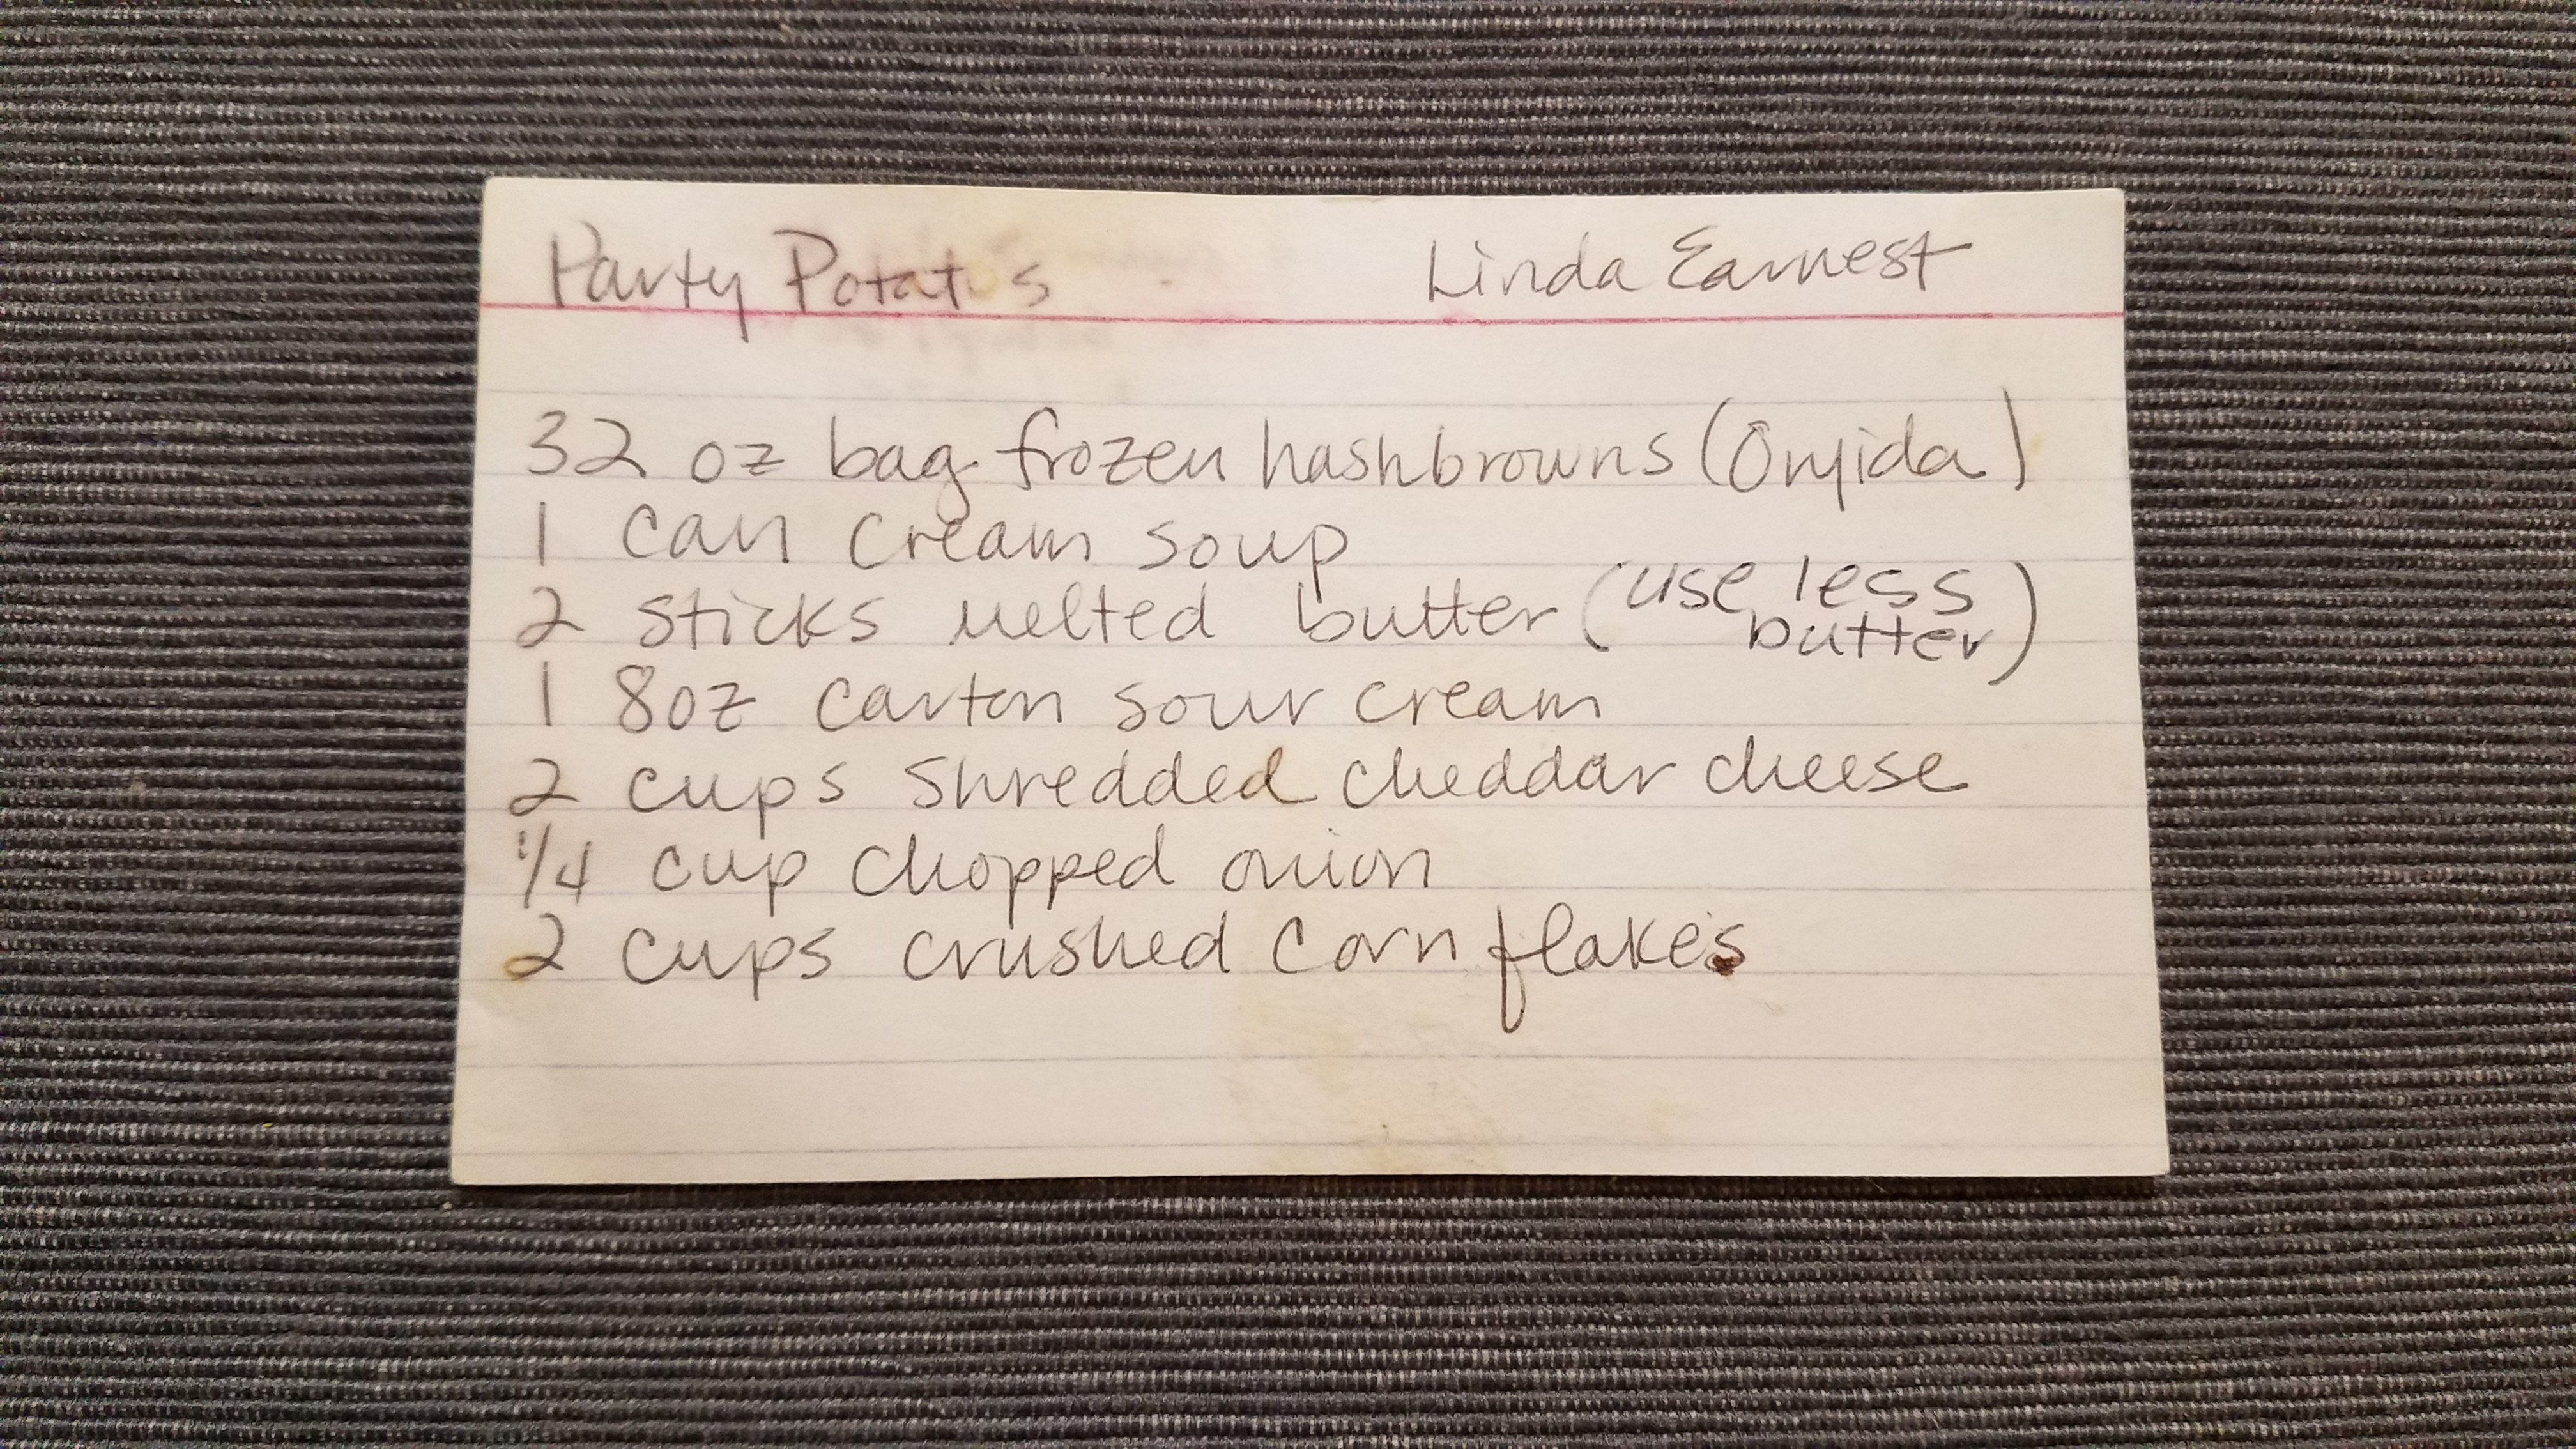 Party Potatos Linda Earnest
32 oz bag frozen hashbrowns (Oryida)
1 can cream soup
2 sticks melted butter (use less
butter)
1 8oz carton sour cream
2 cups shredded cheddar cheese
1/4 cup chopped onion
2 cups crushed corn flakes